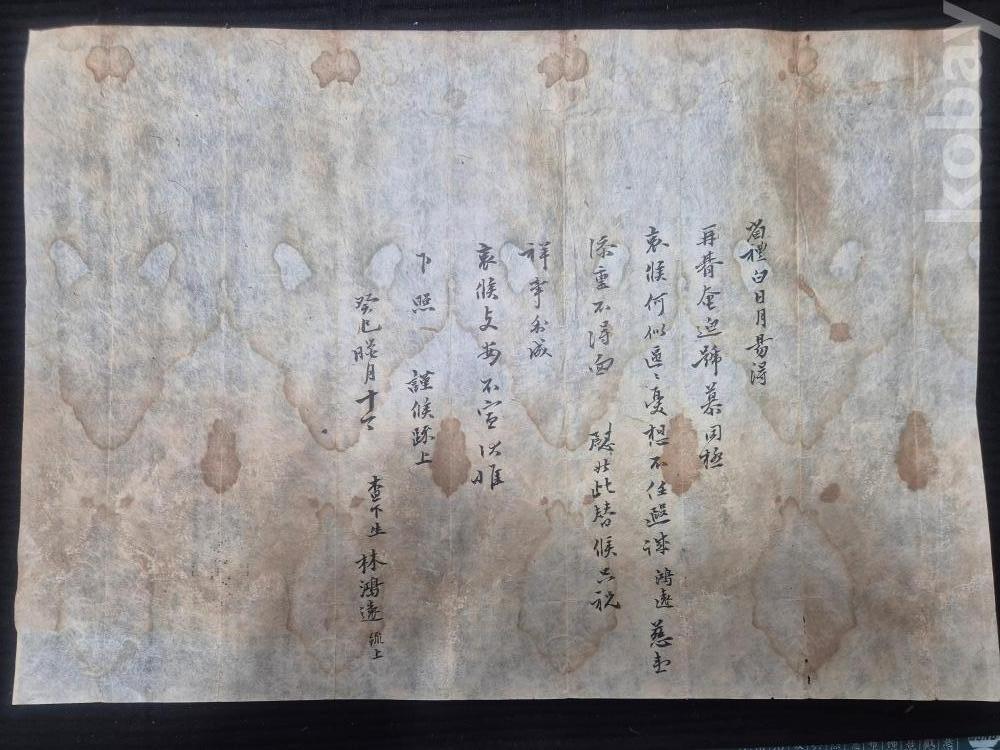 省禮白日月易得
再朞奄迫號慕罔極
哀候何似區〻憂想不任遐溸鴻遠
添重不得面 慰此替候只祝
祥事利成
哀候支安不宣伏惟
下照 謹候疏上
癸巳臘月十
查下生 林鴻遠 疏上
kobay